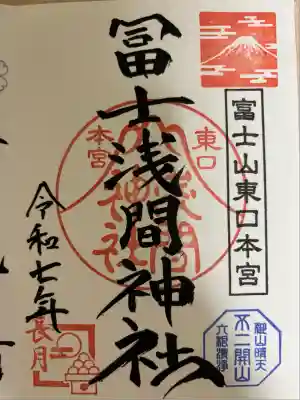 富士山東口本宮
冨士浅間神社
東口
本宮
浅間
神社
令和七年
長月
不二開山
六根清浄